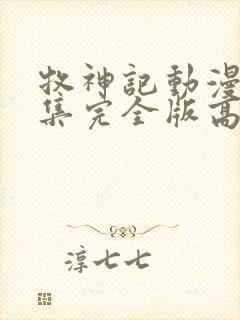 牧神記動漫
集完全版高
淳七七